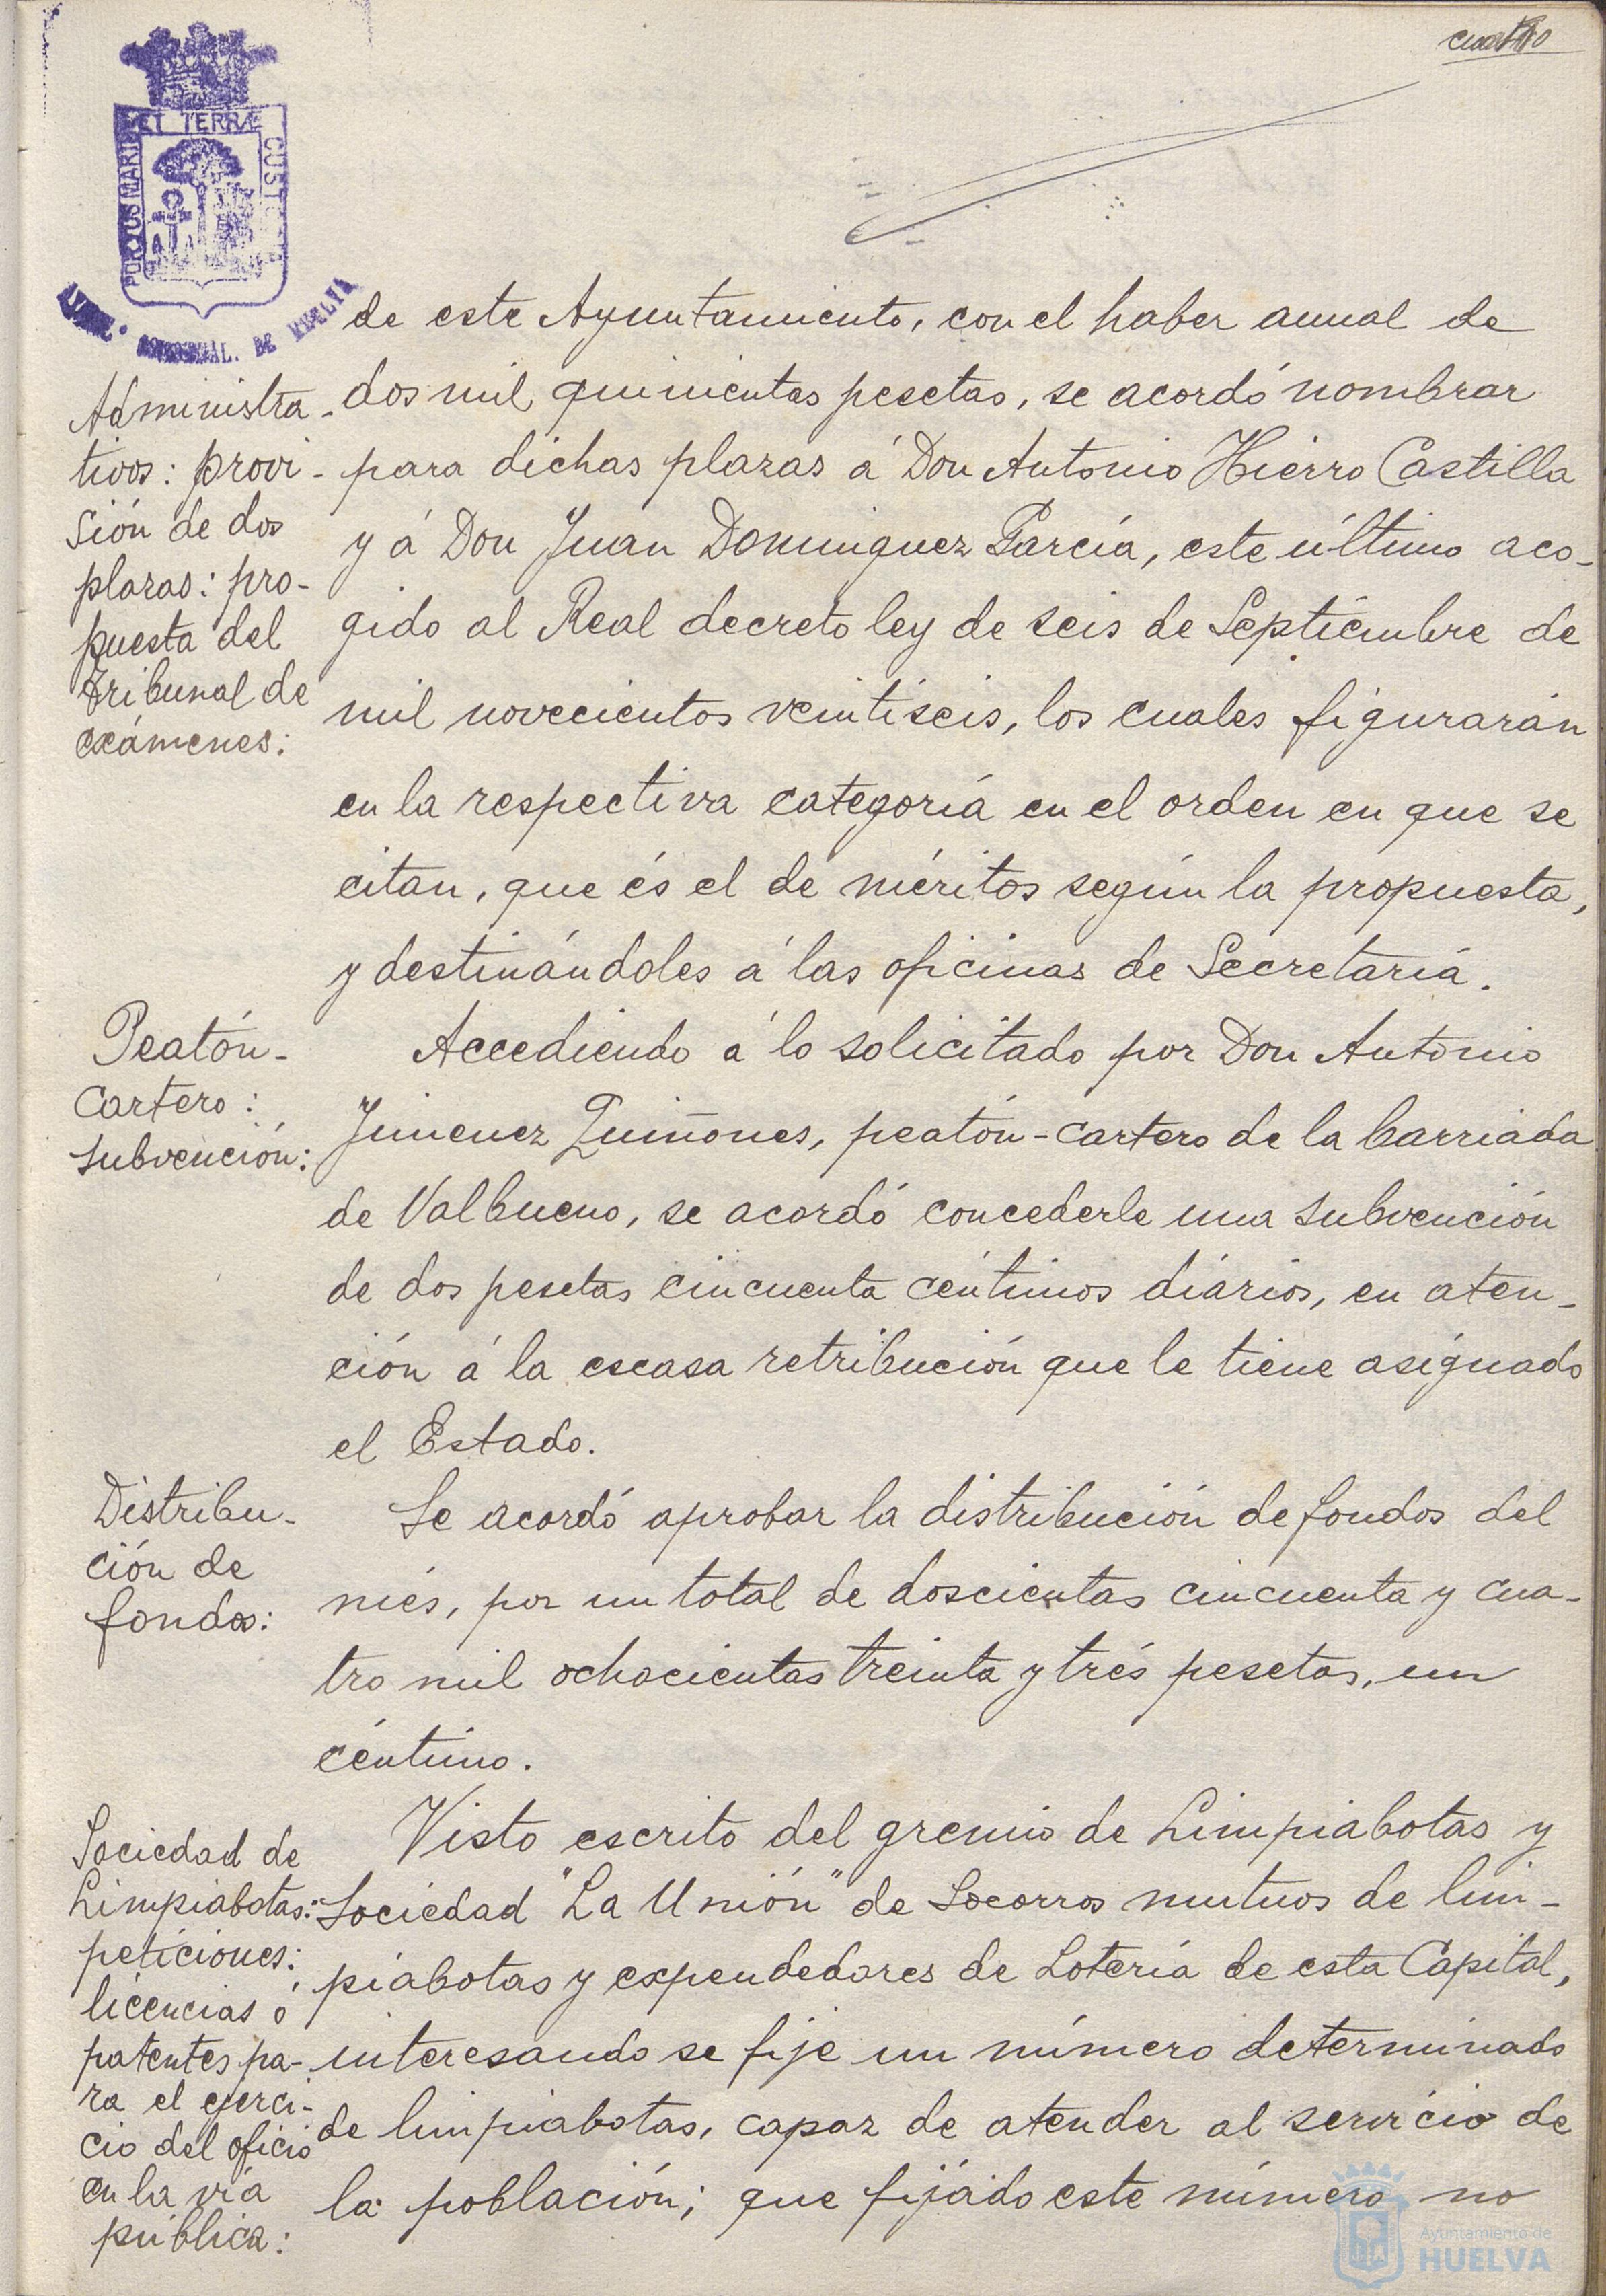 cuatro
PORTUS MARIS ET TERRÆ CUSTO
DE HUELVA
de este Ayuntamiento, con el haber anual de
Administra-
tivos: provi-
sión de dos
plazas: pro-
puesta del
tribunal de
exámenes:
dos mil quinientas pesetas, se acordó nombrar
para dichas plazas á Don Antonio Hierro Castilla
y á Don Juan Dominguez García, este último aco-
gido al Real decreto ley de seis de Septiembre de
mil novecientos veintiseis, los cuales figurarán
en la respectiva categoría en el orden en que se
citan, que és el de méritos según la propuesta,
y destinándoles á las oficinas de Secretaría.
Peatón-
Cartero:
subvención:
Accediendo á lo solicitado por Don Antonio
Jimenez Quiñones, peatón-cartero de la barriada
de Valbueno, se acordó concederle una subvención
de dos pesetas cincuenta céntimos diários, en aten-
ción á la escasa retribución que le tiene asignado
el Estado.
Distribu-
ción de
fondos:
Se acordó aprobar la distribución de fondos del
més, por un total de doscientas cincuenta y cua-
tro mil ochocientas treinta y trés pesetas, un
céntimo.
Sociedad de
Limpiabotas:
peticiones:
licencias ó
patentes pa-
ra el ejerci-
cio del oficio
en la vía
pública:
Visto escrito del gremio de Limpiabotas y
Sociedad "La Unión" de Socorros mutuos de lim-
piabotas y expendedores de Lotería de esta Capital,
interesando se fije un número determinado
de limpiabotas, capaz de atender al servicio de
la población; que fijádo este número no
Ayuntamiento de
HUELVA